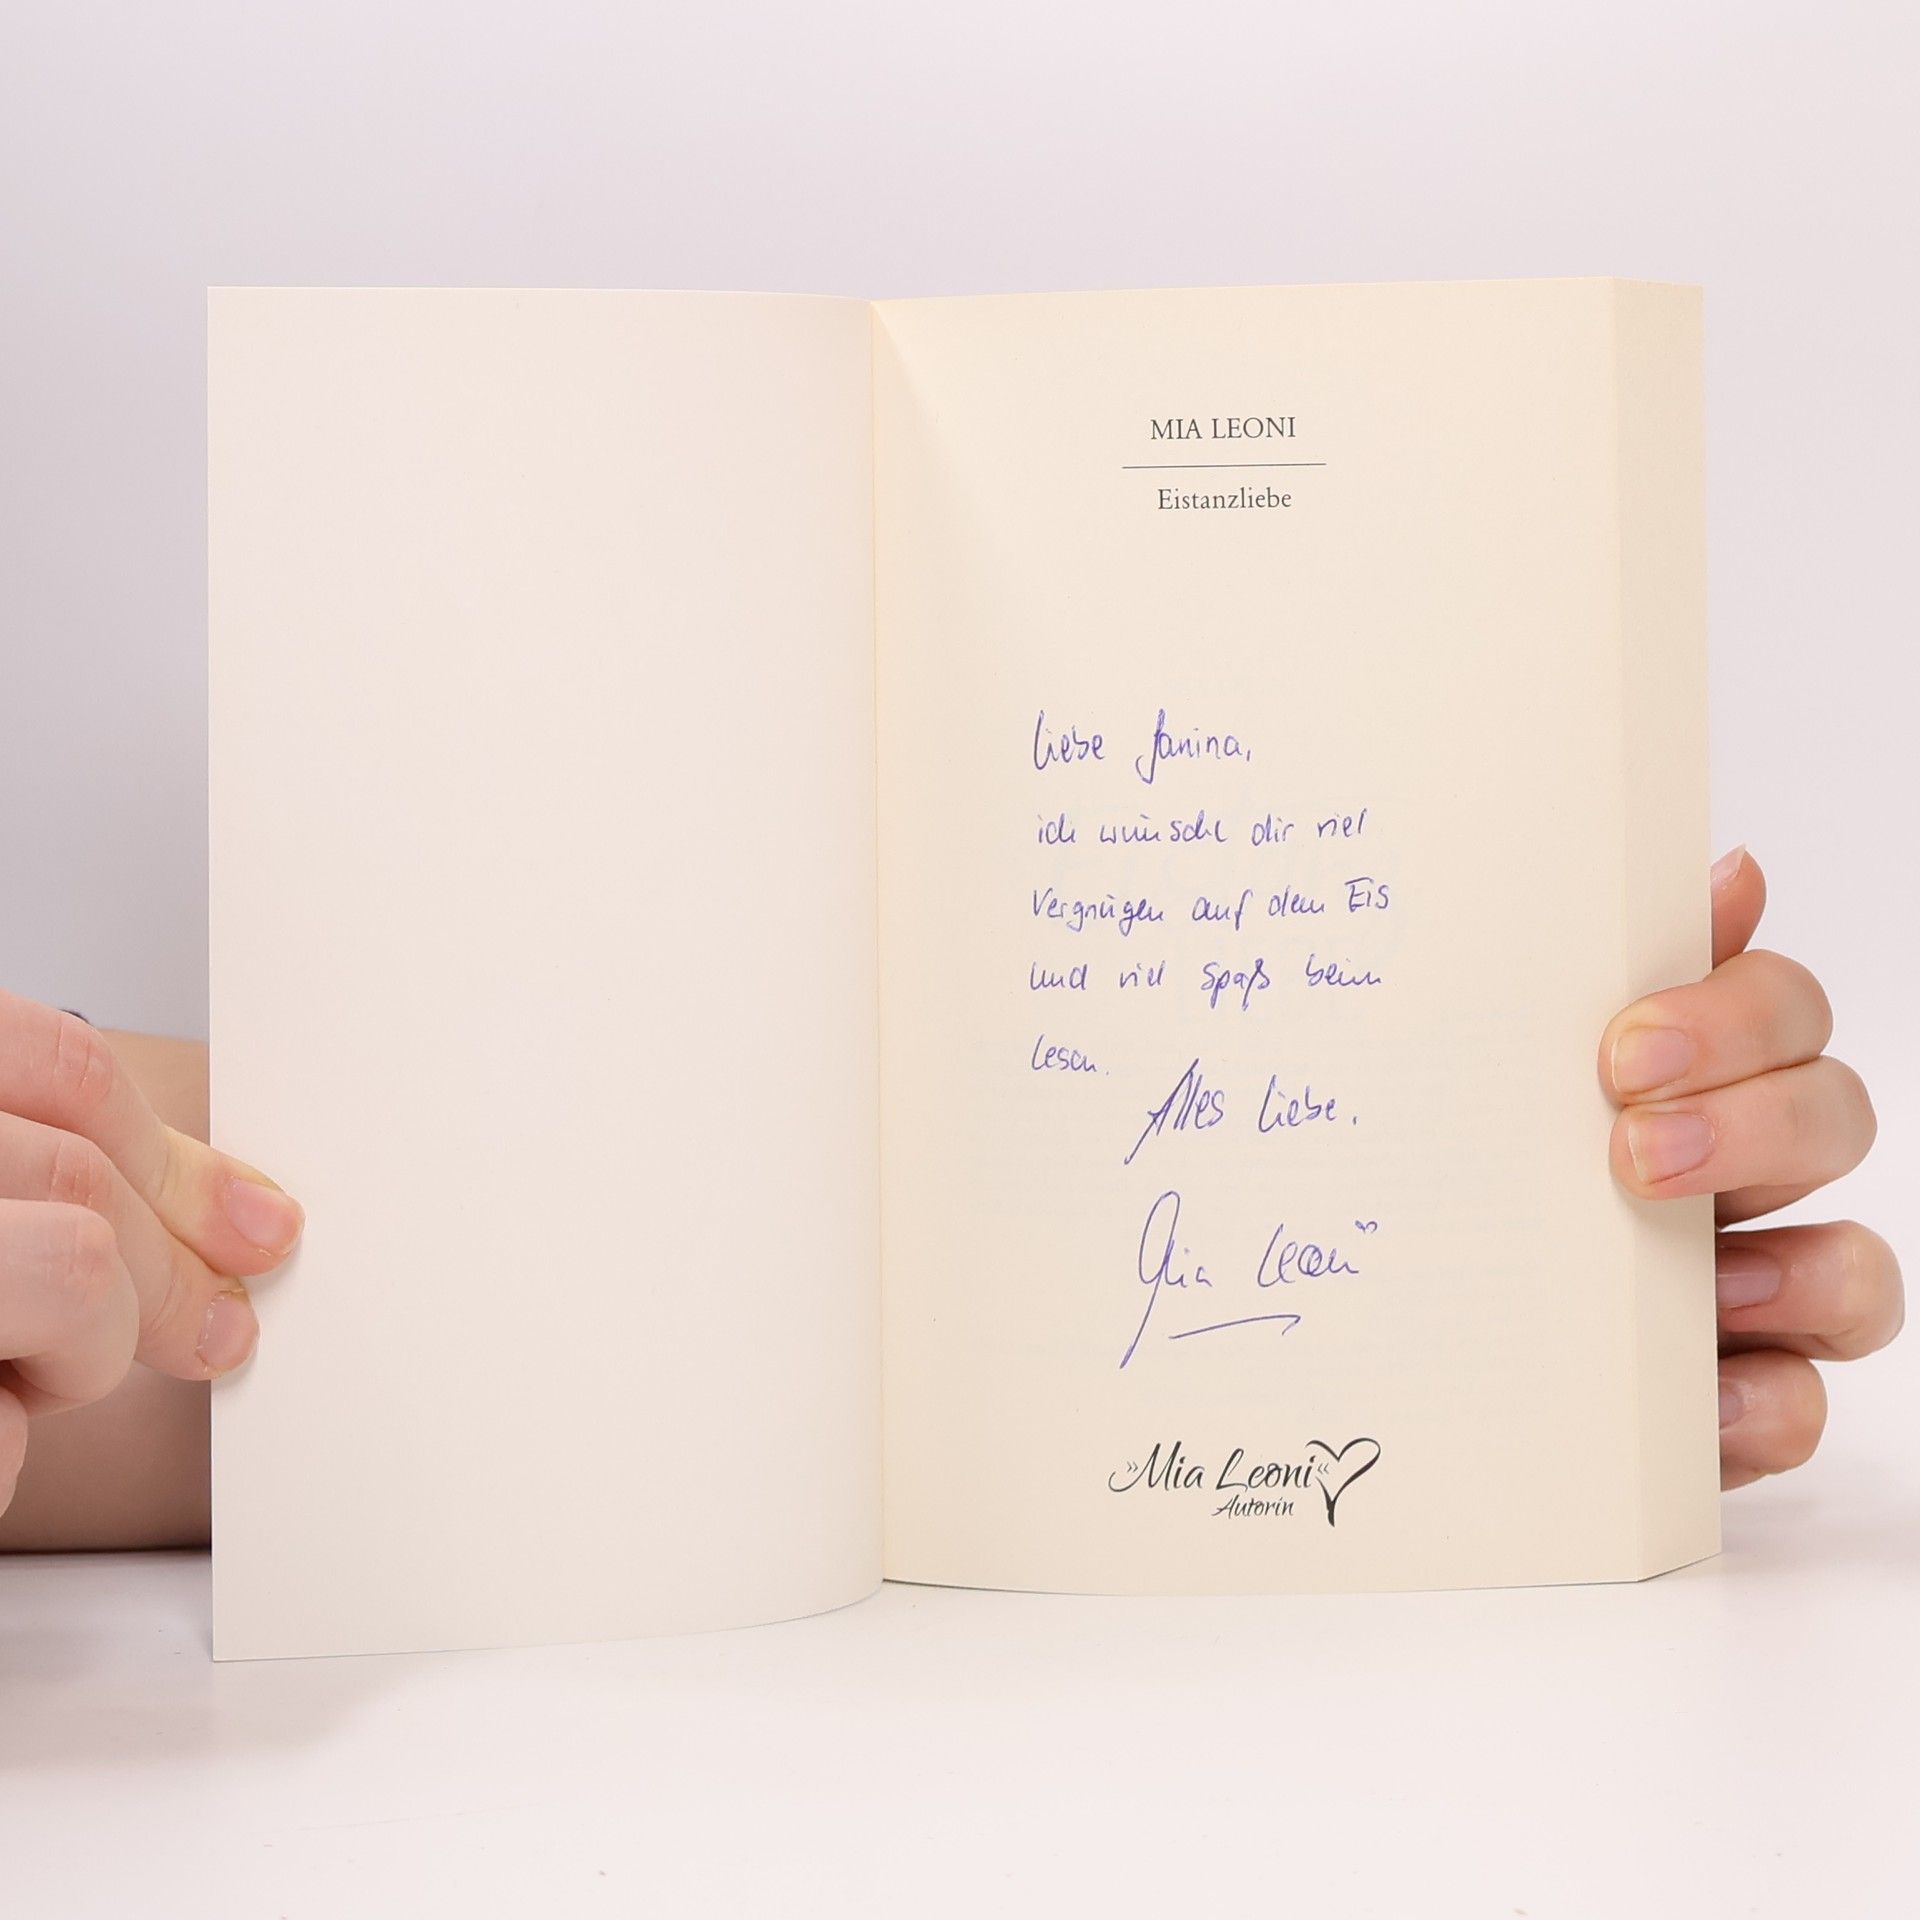 MIA LEONI
Eistanzliebe
Liebe Janina,
ich wünsche dir viel
Vergnügen auf dem Eis
und viel Spaß beim
Lesen.
Alles Liebe.
Mia Leoni
»Mia Leoni«
Autorin